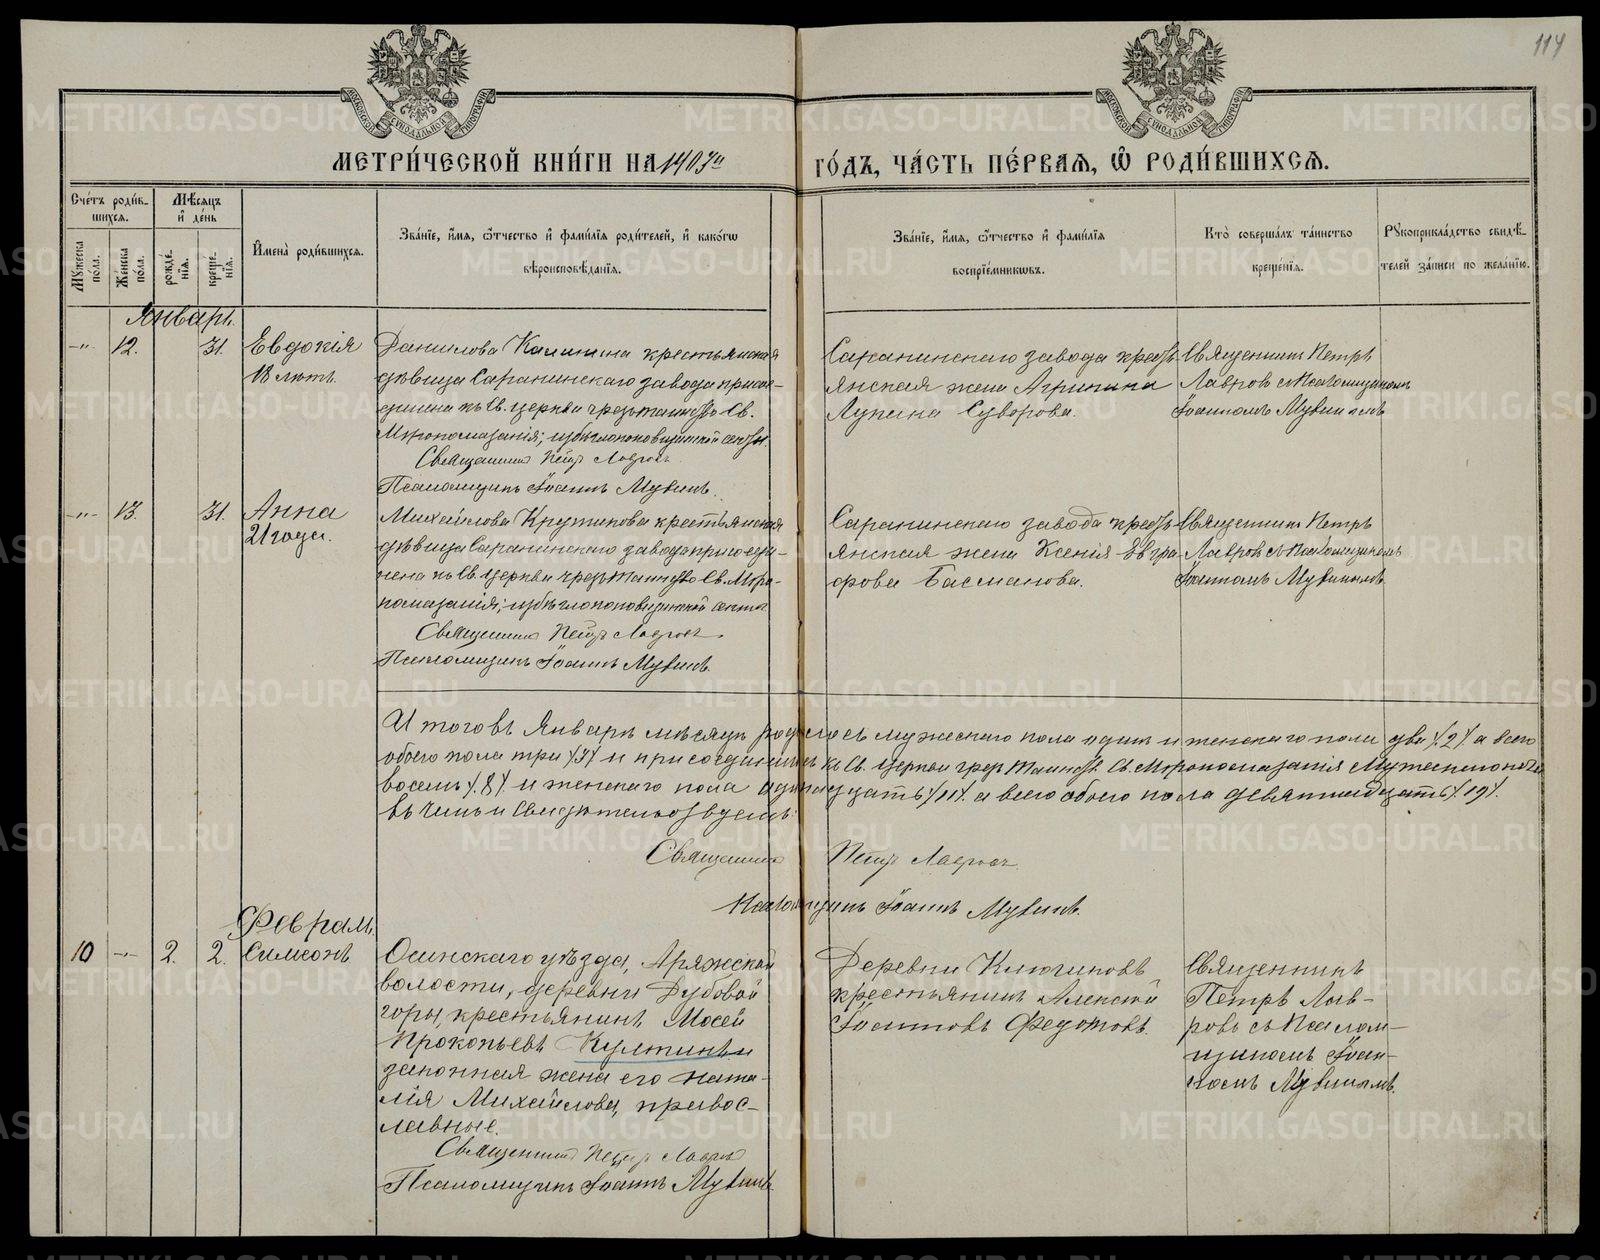 114
МЕТРИ́ЧЕСКОЙ КНИ́ГИ НА 1903й ГО́ДЪ, ЧА́СТЬ ПЕ́РВАЯ, Ѽ РОДИ́ВШИХСЯ.
Сче́тъ роди́в-
шихся.
Мѣ́сяцъ
и҆ де́нь
Мꙋ́жеска по́ла.
Же́нска по́ла.
рожде́-
нїя.
креще́-
нїя.
И҆мена̀ роди́вшихся.
Зва́нїе, и҆́мя, ѻ҆́тчество и҆ фами́лїя роди́телей, и҆ како́гѡ
вѣроисповѣ́данїя.
Зва́нїе, и҆́мя, ѻ҆́тчество и҆ фами́лїя
воспрїе́мникѡвъ.
Кто̀ соверша́лъ та́инство
креще́нїя.
Рꙋкоприкла́дство свидѣ́-
телей за́писи по жела́нїю.
Январь.
-"- 12. 31. Евдокія
18 лѣтъ.
Данилова Калинина крестьянская
дѣвица Саранинскаго завода присое-
динена къ Св. церкви чрезъ таинство Св.
Мѵропомазанія; изъ бѣглопоповщинской секты.
Священникъ Петръ Лавровъ
Псаломщикъ Іоаннъ Мувинъ.
Саранинскаго завода кресть
янская жена Агрипина
Лукина Суворова.
Священникъ Петръ
Лавровъ съ Псаломщикомъ
Іоанномъ Мувинымъ
-"- 13. 31. Анна
21 года.
Михайлова Крутикова крестьянская
дѣвица Саранинскаго завода присоеди-
нена къ Св. церкви чрезъ таинство Св. Мѵро-
помазанія; изъ бѣглопоповщинской секты
Священникъ Петръ Лавровъ.
Псаломщикъ Іоаннъ Мувинъ.
Саранинскаго завода кресть
янская жена Ксенія Евгра
фова Басманова.
Священникъ Петръ
Лавровъ съ Псаломщикомъ
Іоанномъ Мувинымъ
Итого въ Январѣ мѣсяцѣ родилось мужескаго пола одинъ и женскаго пола два /.2/. а всего
обоего пола три /3/ и присоединилось къ Св. Церкви чрезъ Таинств. Св. Мѵропомазанія Мужескаго пола
восемь /.8/. и женскаго пола одинадцать /11/. а всего обоего пола девятнадцать /.19/.
въ чемъ и свидѣтельствуемъ:
Священникъ Петръ Лавровъ
Псаломщикъ Іоаннъ Мувинъ.
Февраль.
10 -"- 2. 2. Симеонъ
Осинскаго уѣзда, Аряжской
волости, деревни Дубовой
горы, крестьянинъ Мосей
Прокопьевъ Култинъ и
законная жена его Ната-
лія Михайлова, правос-
лавные.
Священникъ Петръ Лавровъ
Псаломщикъ Іоаннъ Мувинъ.
Деревни Ключиковъ
крестьянинъ Алексей
Іоанновъ Федотовъ.
Священникъ
Петръ Лав-
ровъ съ Псалом-
щикомъ Іоан-
номъ Мувинымъ.
METRIKI.GASO-URAL.RU